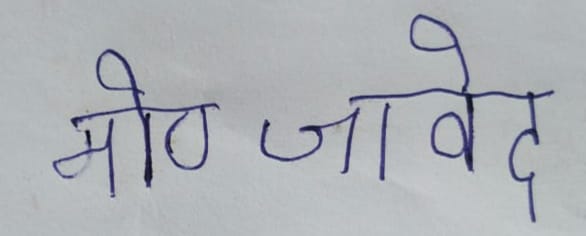 मो० जावेद